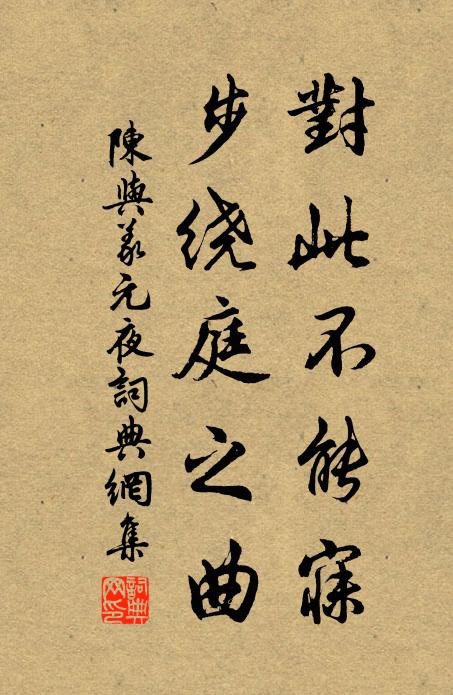 對此不能寐
步繞庭之曲
陳與義元夜詞典網集
詞典網印